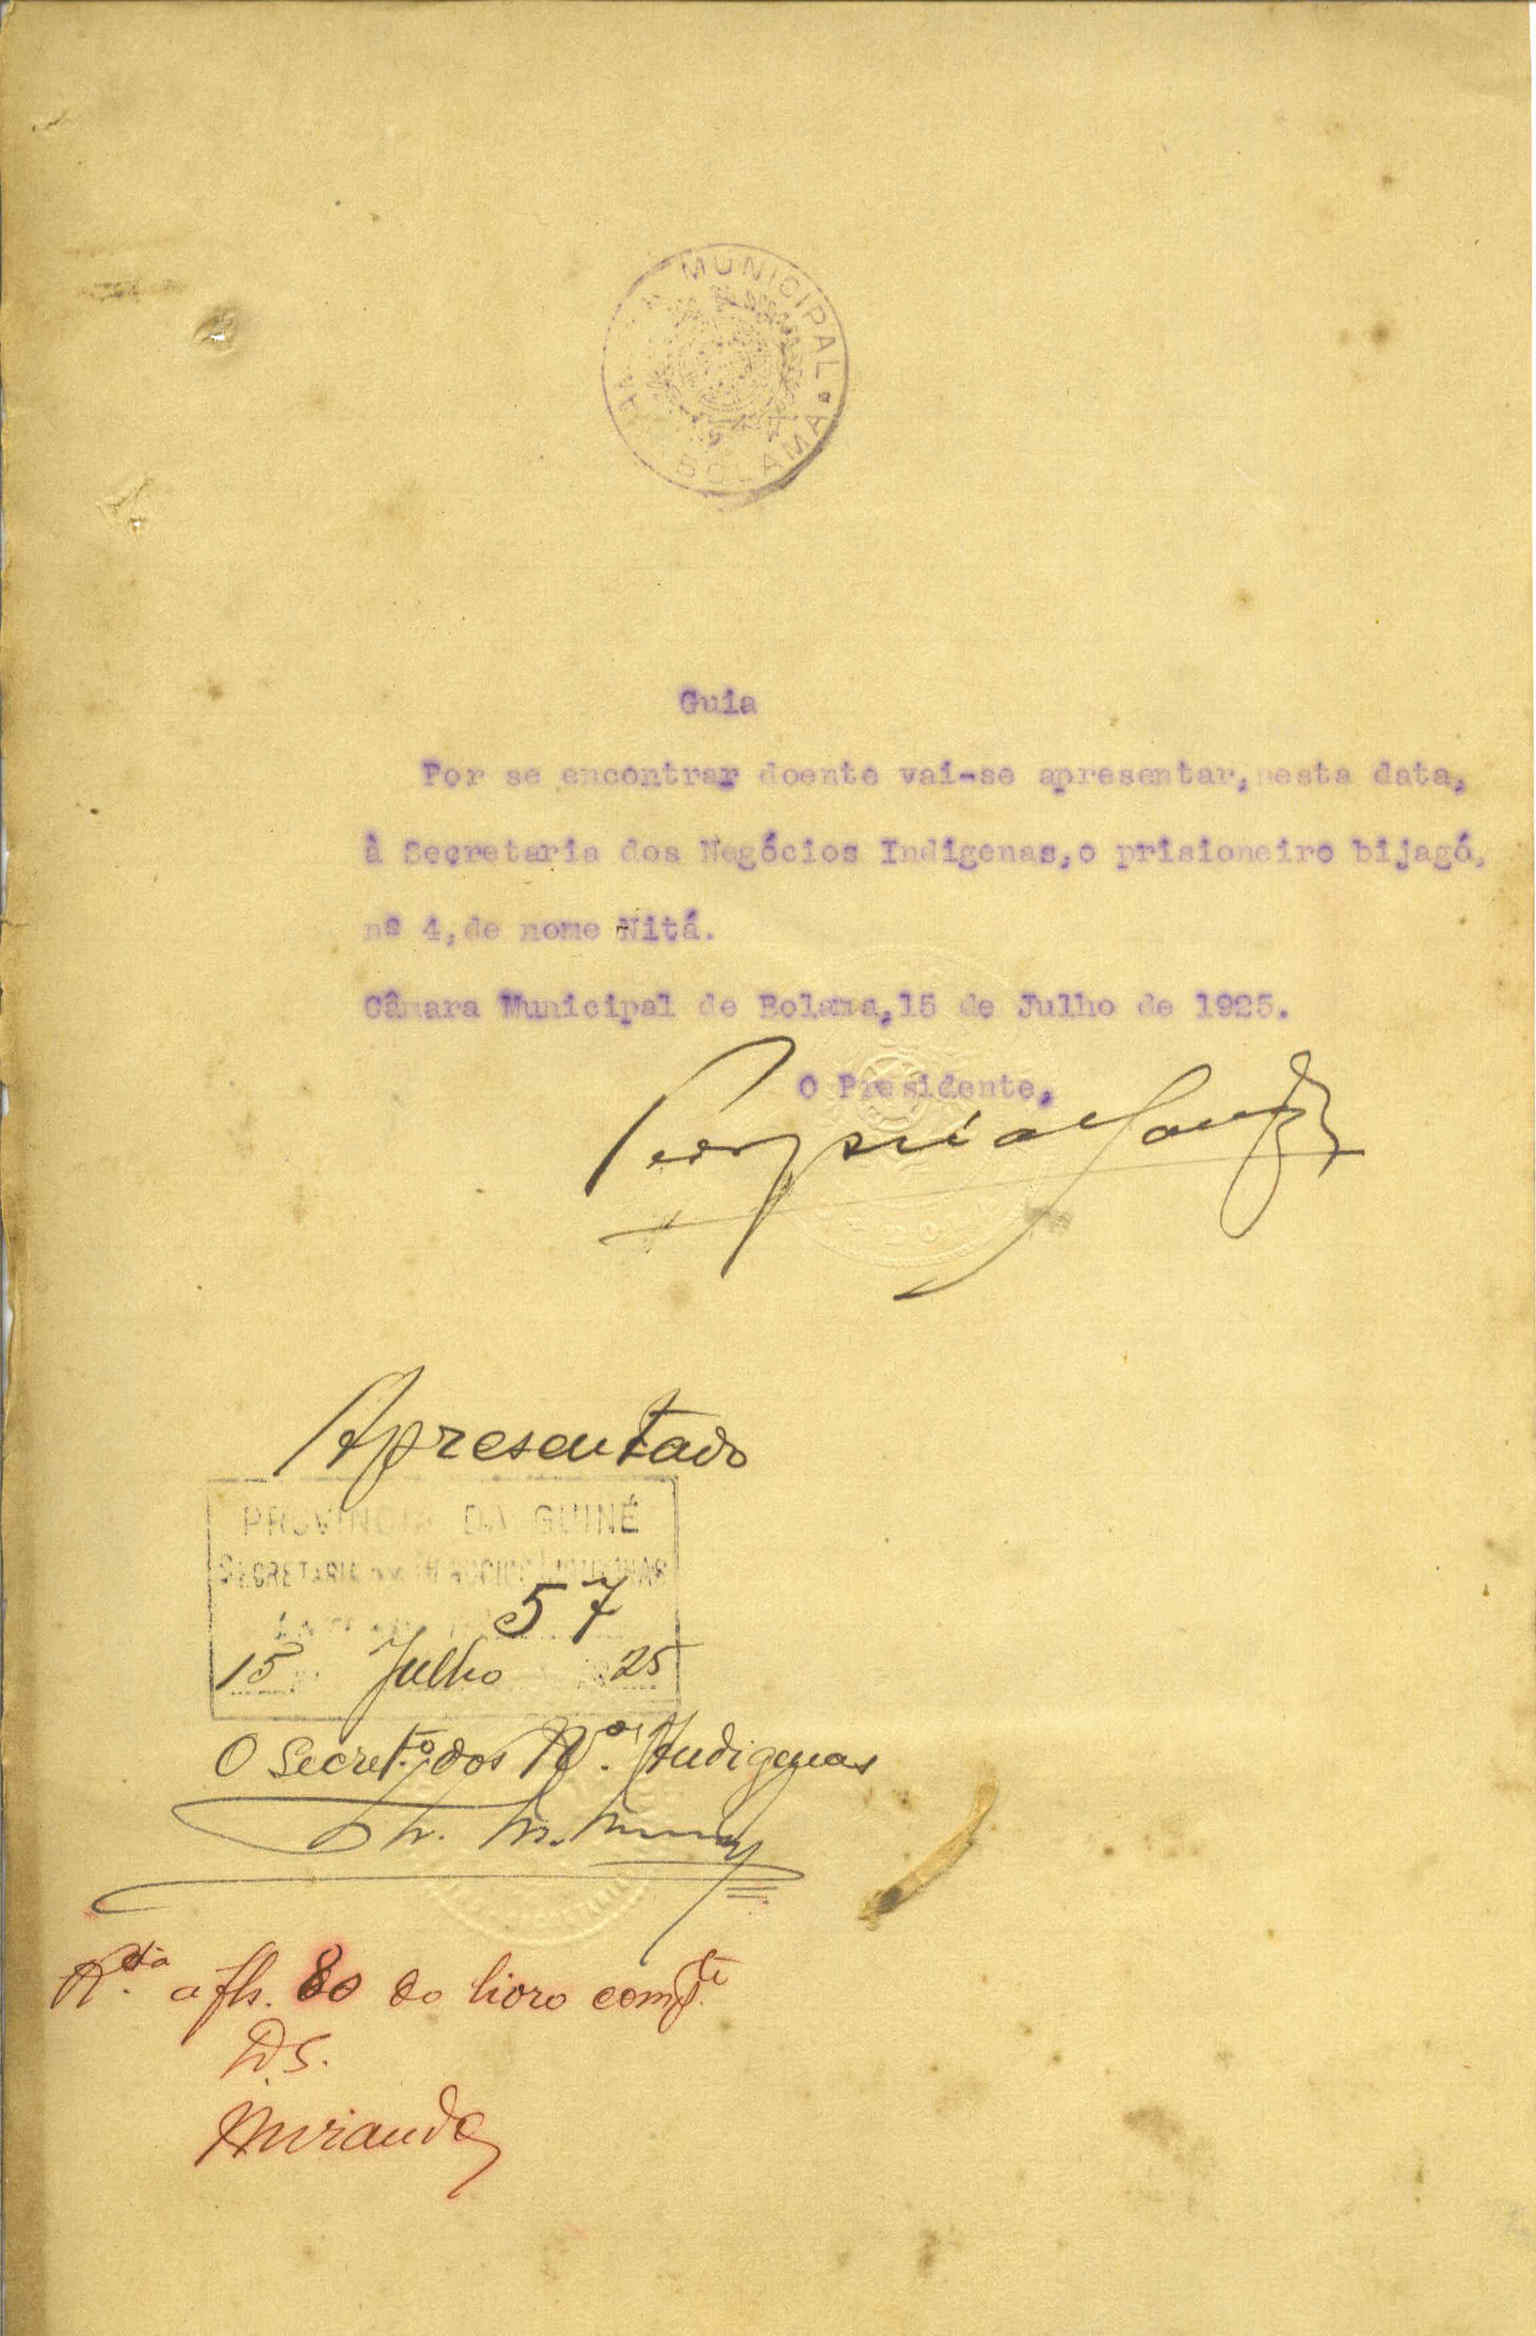 MUNICIPAL
BOLAMA
Guia
Por se encontrar doente vai-se apresentar, nesta data,
à Secretaria dos Negócios Indigenas, o prisioneiro bijagó,
nº 4, de nome Nitá.
Câmara Municipal de Bolama, 15 de Julho de 1925.
O Presidente,
Apresentado
PROVINCIA DA GUINÉ
SECRETARIA
57
15 Julho 25
O Secret.º dos N.os Indigenas
R.da a fls. 80 do livro comp.te
D.S.
Miranda